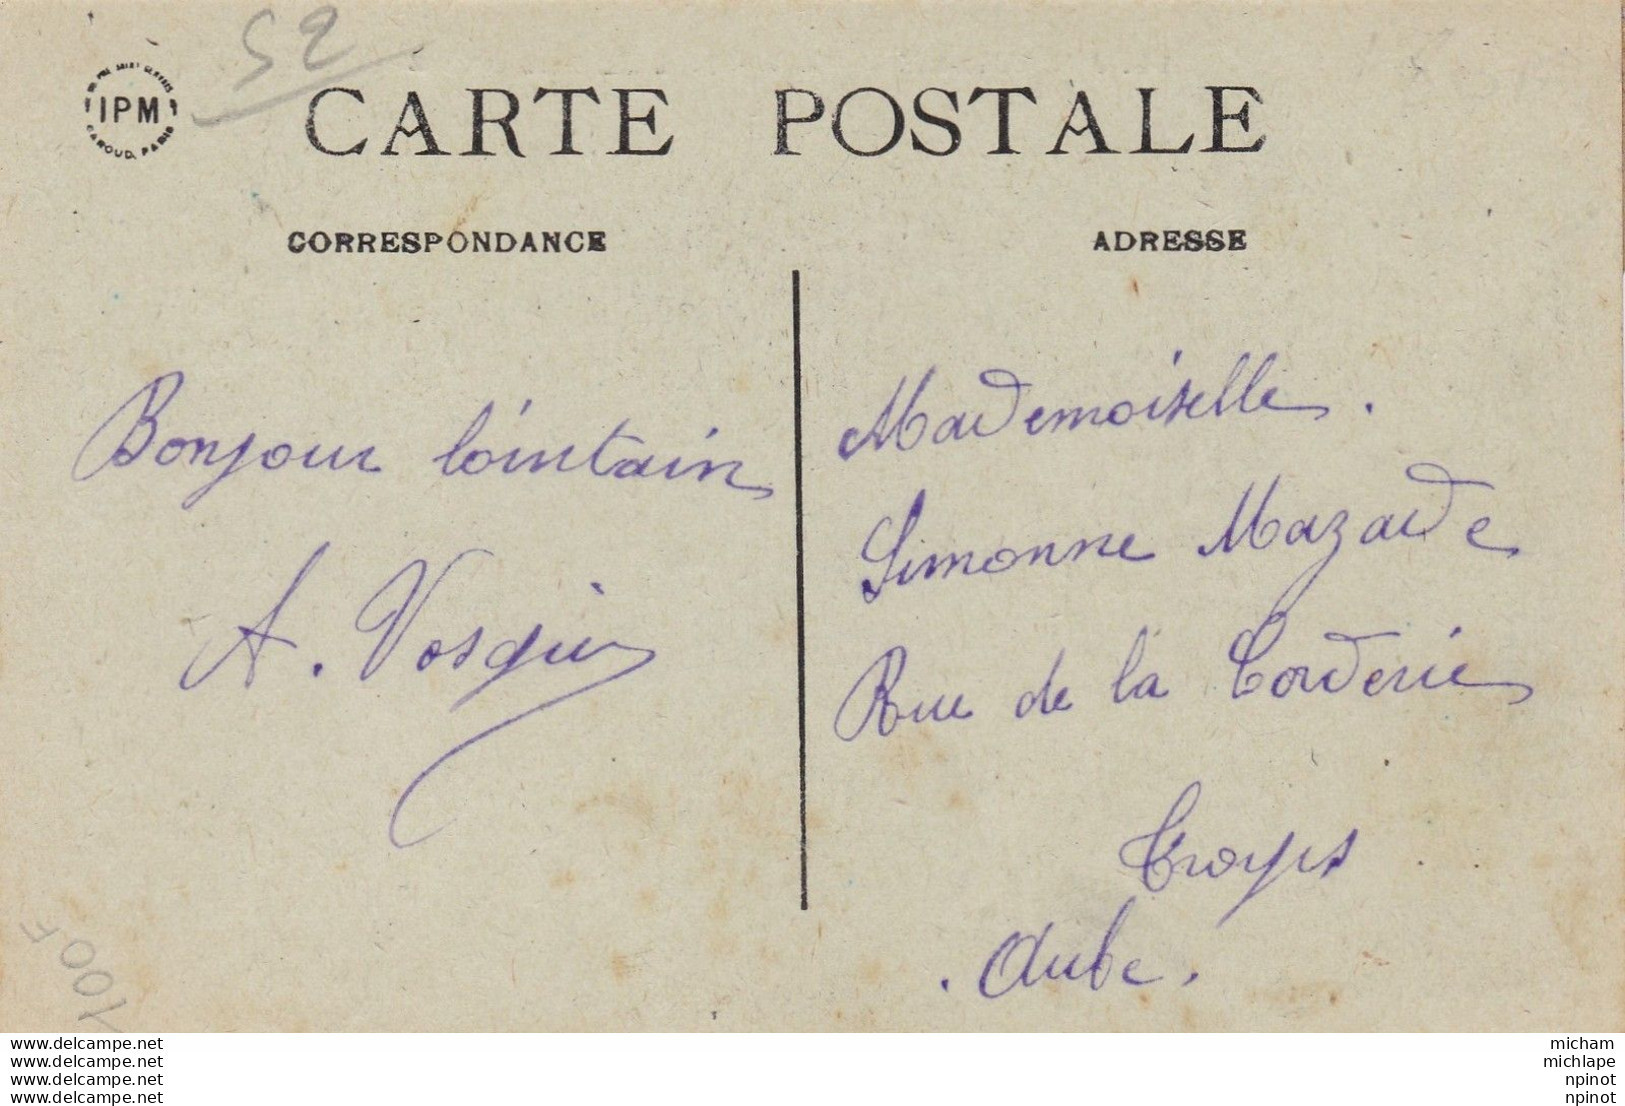 52
IPM
CAROUD, PARIS
CARTE POSTALE
CORRESPONDANCE
ADRESSE
Bonjour lointain
A. Vosgien
Mademoiselle.
Simonne Mazade
Rue de la Corderie
Troyes
. Aube.
100F
www.delcampe.net
www.delcampe.net
www.delcampe.net
www.delcampe.net
micham
michlape
npinot
npinot